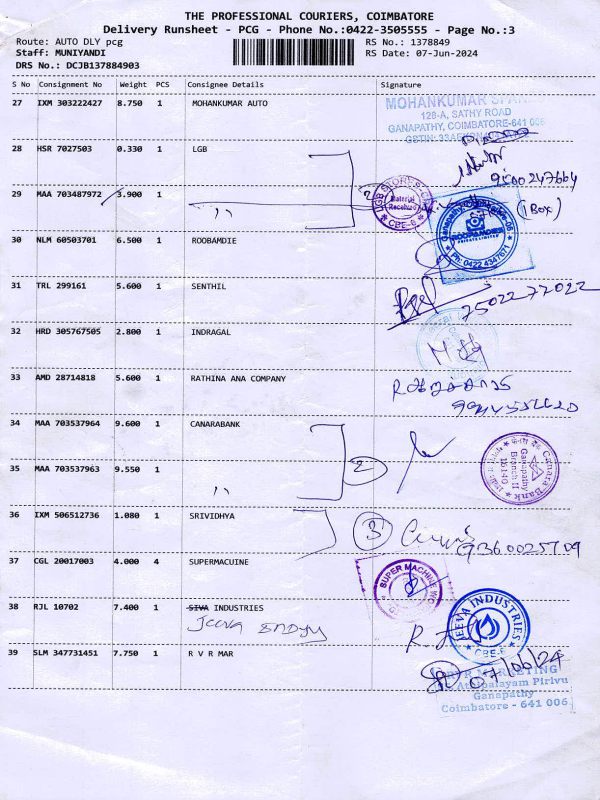 THE PROFESSIONAL COURIERS, COIMBATORE
Delivery Runsheet - PCG - Phone No.:0422-3505555 - Page No.:3
Route: AUTO DLY pcg RS No.: 1378849
Staff: MUNIYANDI RS Date: 07-Jun-2024
DRS No.: DCJB137884903
S No Consignment No Weight PCS Consignee Details Signature
27 IXM 303222427 8.750 1 MOHANKUMAR AUTO
MOHANKUMAR
128-A, SATHY ROAD
GANAPATHY, COIMBATORE-641 006
28 HSR 7027503 0.330 1 LGB
9500247664
29 MAA 703487972 3.900 1 ,, 2 (1 Box)
LGB STORES
Material
Received
CBE-6
30 NLM 60503701 6.500 1 ROOBAMDIE
ROOBAMDIES
PRIVATE LIMITED
Ph: 0422 4347671
31 TRL 299161 5.600 1 SENTHIL
75022 77022
32 HRD 305767505 2.800 1 INDRAGAL
33 AMD 28714818 5.600 1 RATHINA ANA COMPANY
34 MAA 703537964 9.600 1 CANARABANK
35 MAA 703537963 9.550 1 ,, 2
Canara Bank
Ganapathy
Branch II
36 IXM 506512736 1.080 1 SRIVIDHYA 3
9360025709
37 CGL 20017003 4.000 4 SUPERMACUINE
SUPER MACHINE
38 RJL 10702 7.400 1 SIVA INDUSTRIES
JEEVA INDUSTRIES
CBE-6
39 SLM 347731451 7.750 1 R V R MAR
07/06/24
MARKETING
Athipalayam Pirivu
Ganapathy
Coimbatore - 641 006